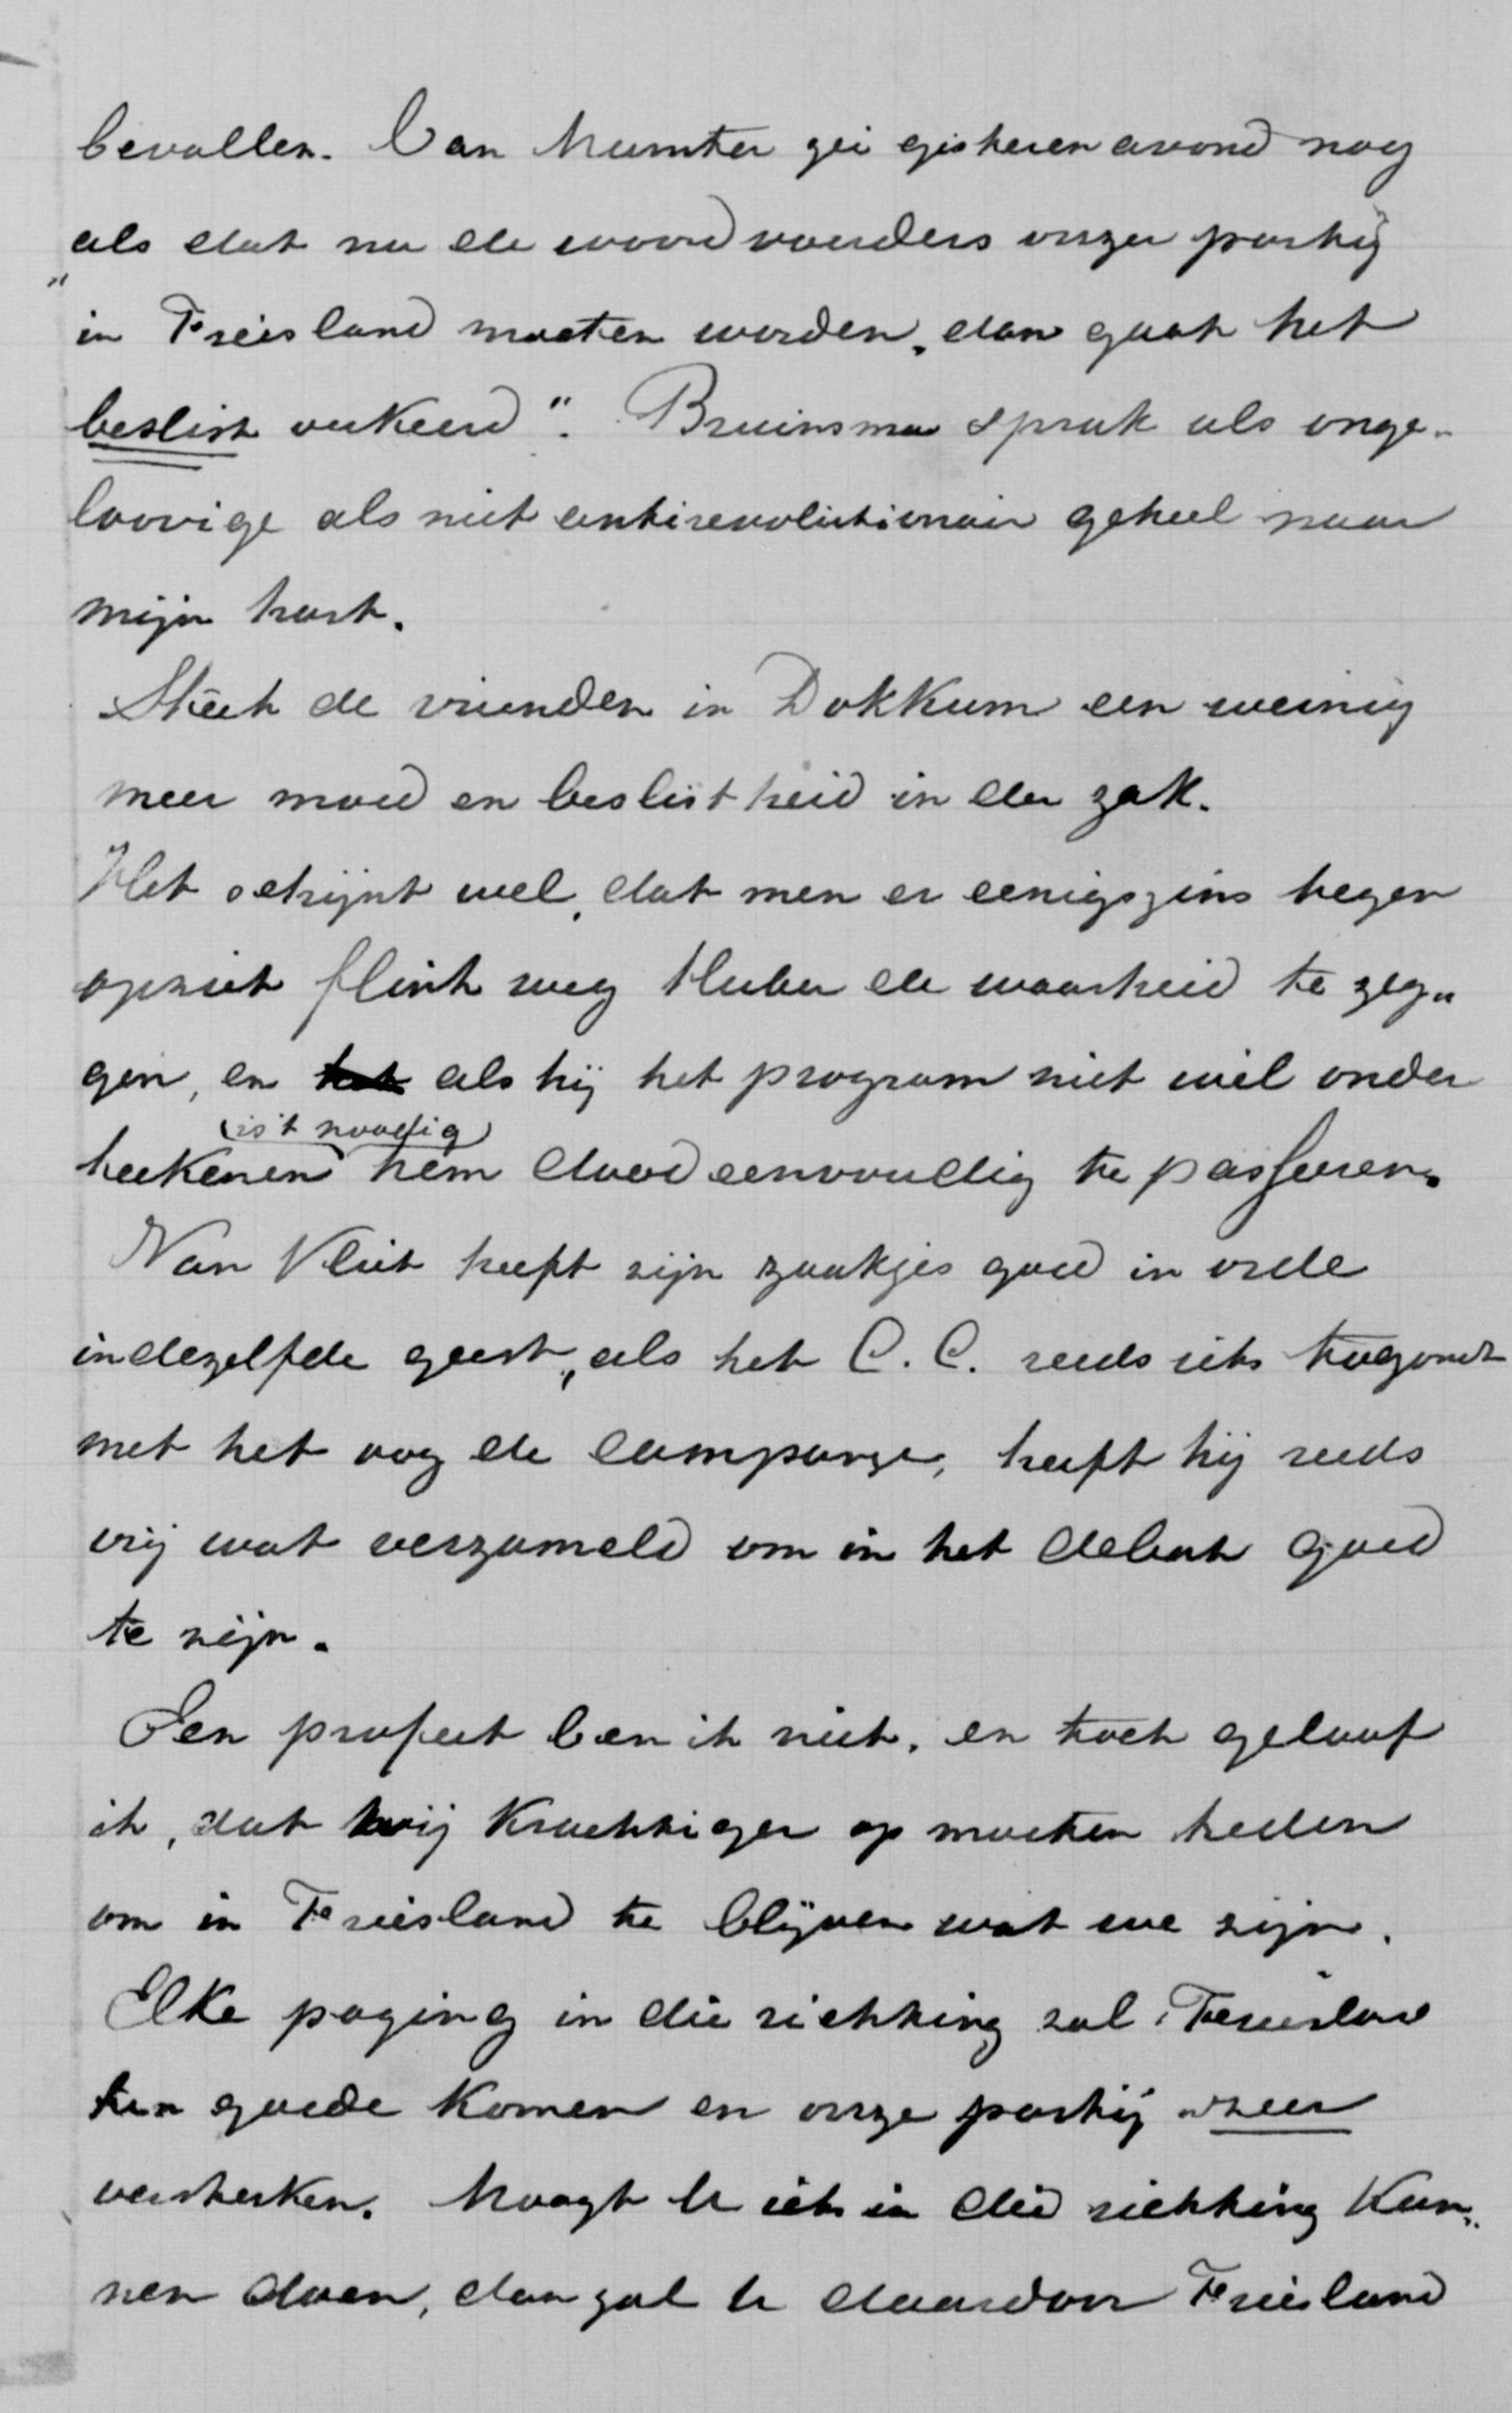 bevallen. Van Munster zei gisteren avond nog
als dat nu de woordvoerders onzer partij
„in Friesland moeten worden, dan gaat het
beslist verkeerd". Bruinsma sprak als onge-
loovige als niet antirevolutionair geheel naar
mijn hart.
Steek de vrienden in Dokkum een weinig
meer moed en beslistheid in den zak.
Het schijnt wel, dat men er eenigszins tegen
opziet flink weg Huber de waarheid te zeg„
gen, en het als hij het program niet wil onder
(is 't noodig)
teekenen hem doodeenvoudig te passeeren.
Van Vliet heeft zijn zaakjes goed in orde
in dezelfde geest, als het C. C. reeds iets toegond
met het oog de campange, heeft hij reeds
vrij wat verzameld om in het debat goed
te zijn.
Een profeet ben ik niet, en toch geloof
ik, dat wij krachtiger op moeten treden
om in Friesland te blijven wat we zijn.
Elke poging in die richting zal Friesland
ten goede komen en onze partij zeer
versterken. Moogt U iets in die richting kun„
nen doen, dan zal U daardoor Friesland